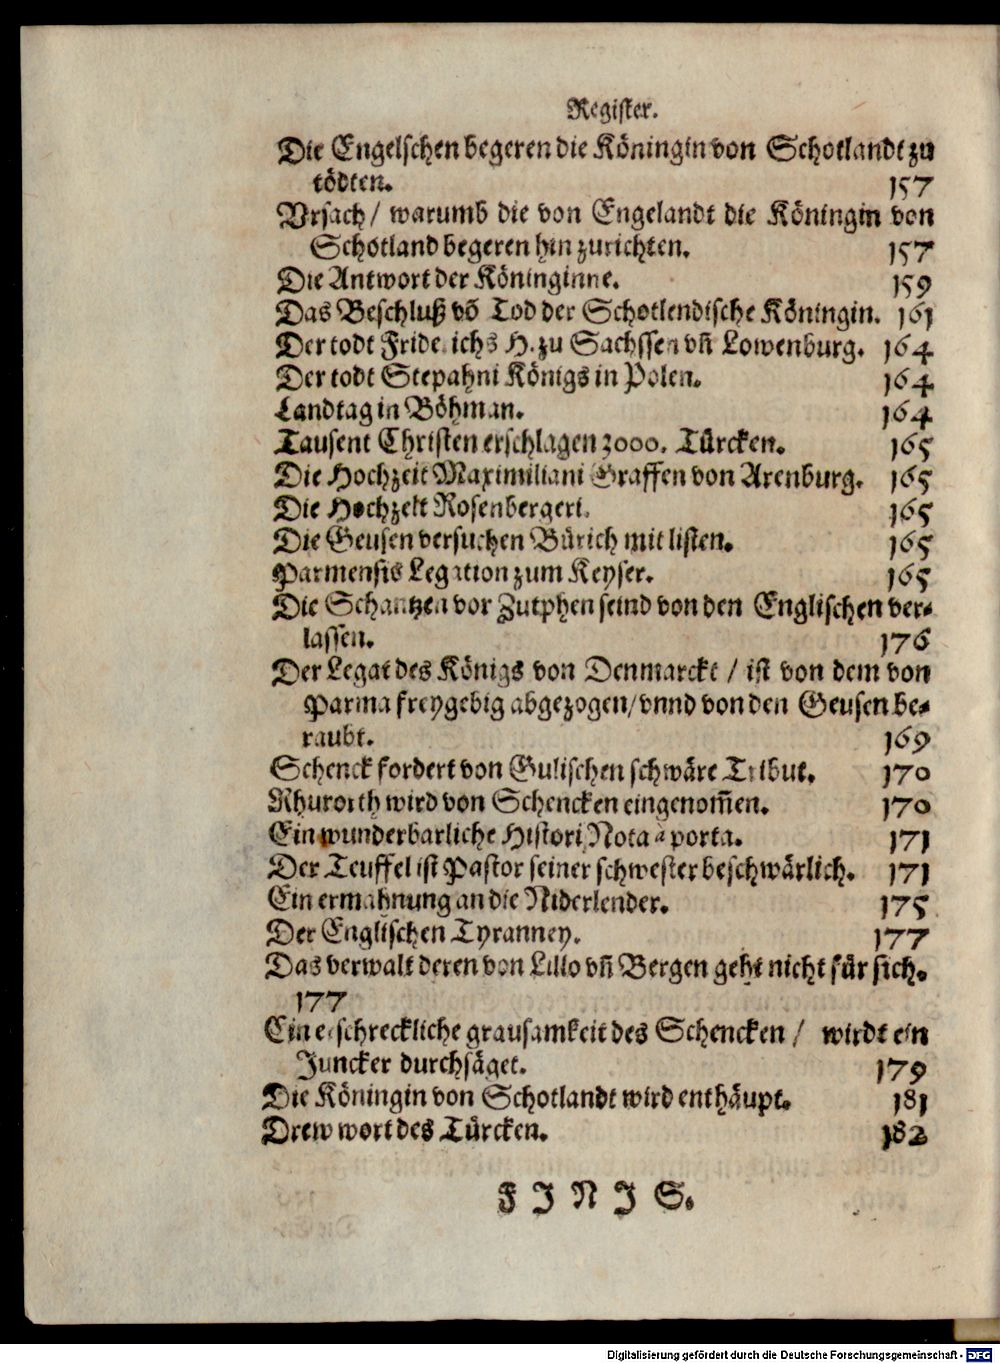 Register.
Die Engelschen begeren die Köningin von Schotlandt zu
tödten. 157
Vrsach / warumb die von Engelandt die Köningin von
Schotland begeren hin zurichten. 157
Die Antwort der Köninginne. 159
Das Beschluß võ Tod der Schotlendische Köningin. 161
Der todt Friderichs H. zu Sachssen vñ Lowenburg. 164
Der todt Stepahni Königs in Polen. 164
Landtag in Böhman. 164
Tausent Christen erschlagen 3000. Türcken. 165
Die Hochzeit Maximiliani Graffen von Arenburg. 165
Die Hochzeit Rosenbergeri. 165
Die Geusen versuchen Bürich mit listen. 165
Parmensis Legation zum Keyser. 165
Die Schantzen vor Zutphen seind von den Englischen ver-
lassen. 176
Der Legat des Königs von Denmarckt / ist von dem von
Parma freygebig abgezogen / vnnd von den Geusen be-
raubt. 169
Schenck fordert von Gulischen schwäre Tribut. 170
Rhurorth wird von Schencken eingenom̃en. 170
Ein wunderbarliche Histori, Nota à porta. 171
Der Teuffel ist Pastor seiner schwester beschwärlich. 171
Ein ermahnung an die Niderlender. 175
Der Englischen Tyranney. 177
Das verwalt deren von Lillo vñ Bergen geht nicht für sich.
177
Ein erschreckliche grausamkeit des Schencken / wirdt ein
Juncker durchsäget. 179
Die Köningin von Schotlandt wird enthäupt. 181
Drew wort des Türcken. 182
FINIS.
Digitalisierung gefördert durch die Deutsche Forschungsgemeinschaft - DFG